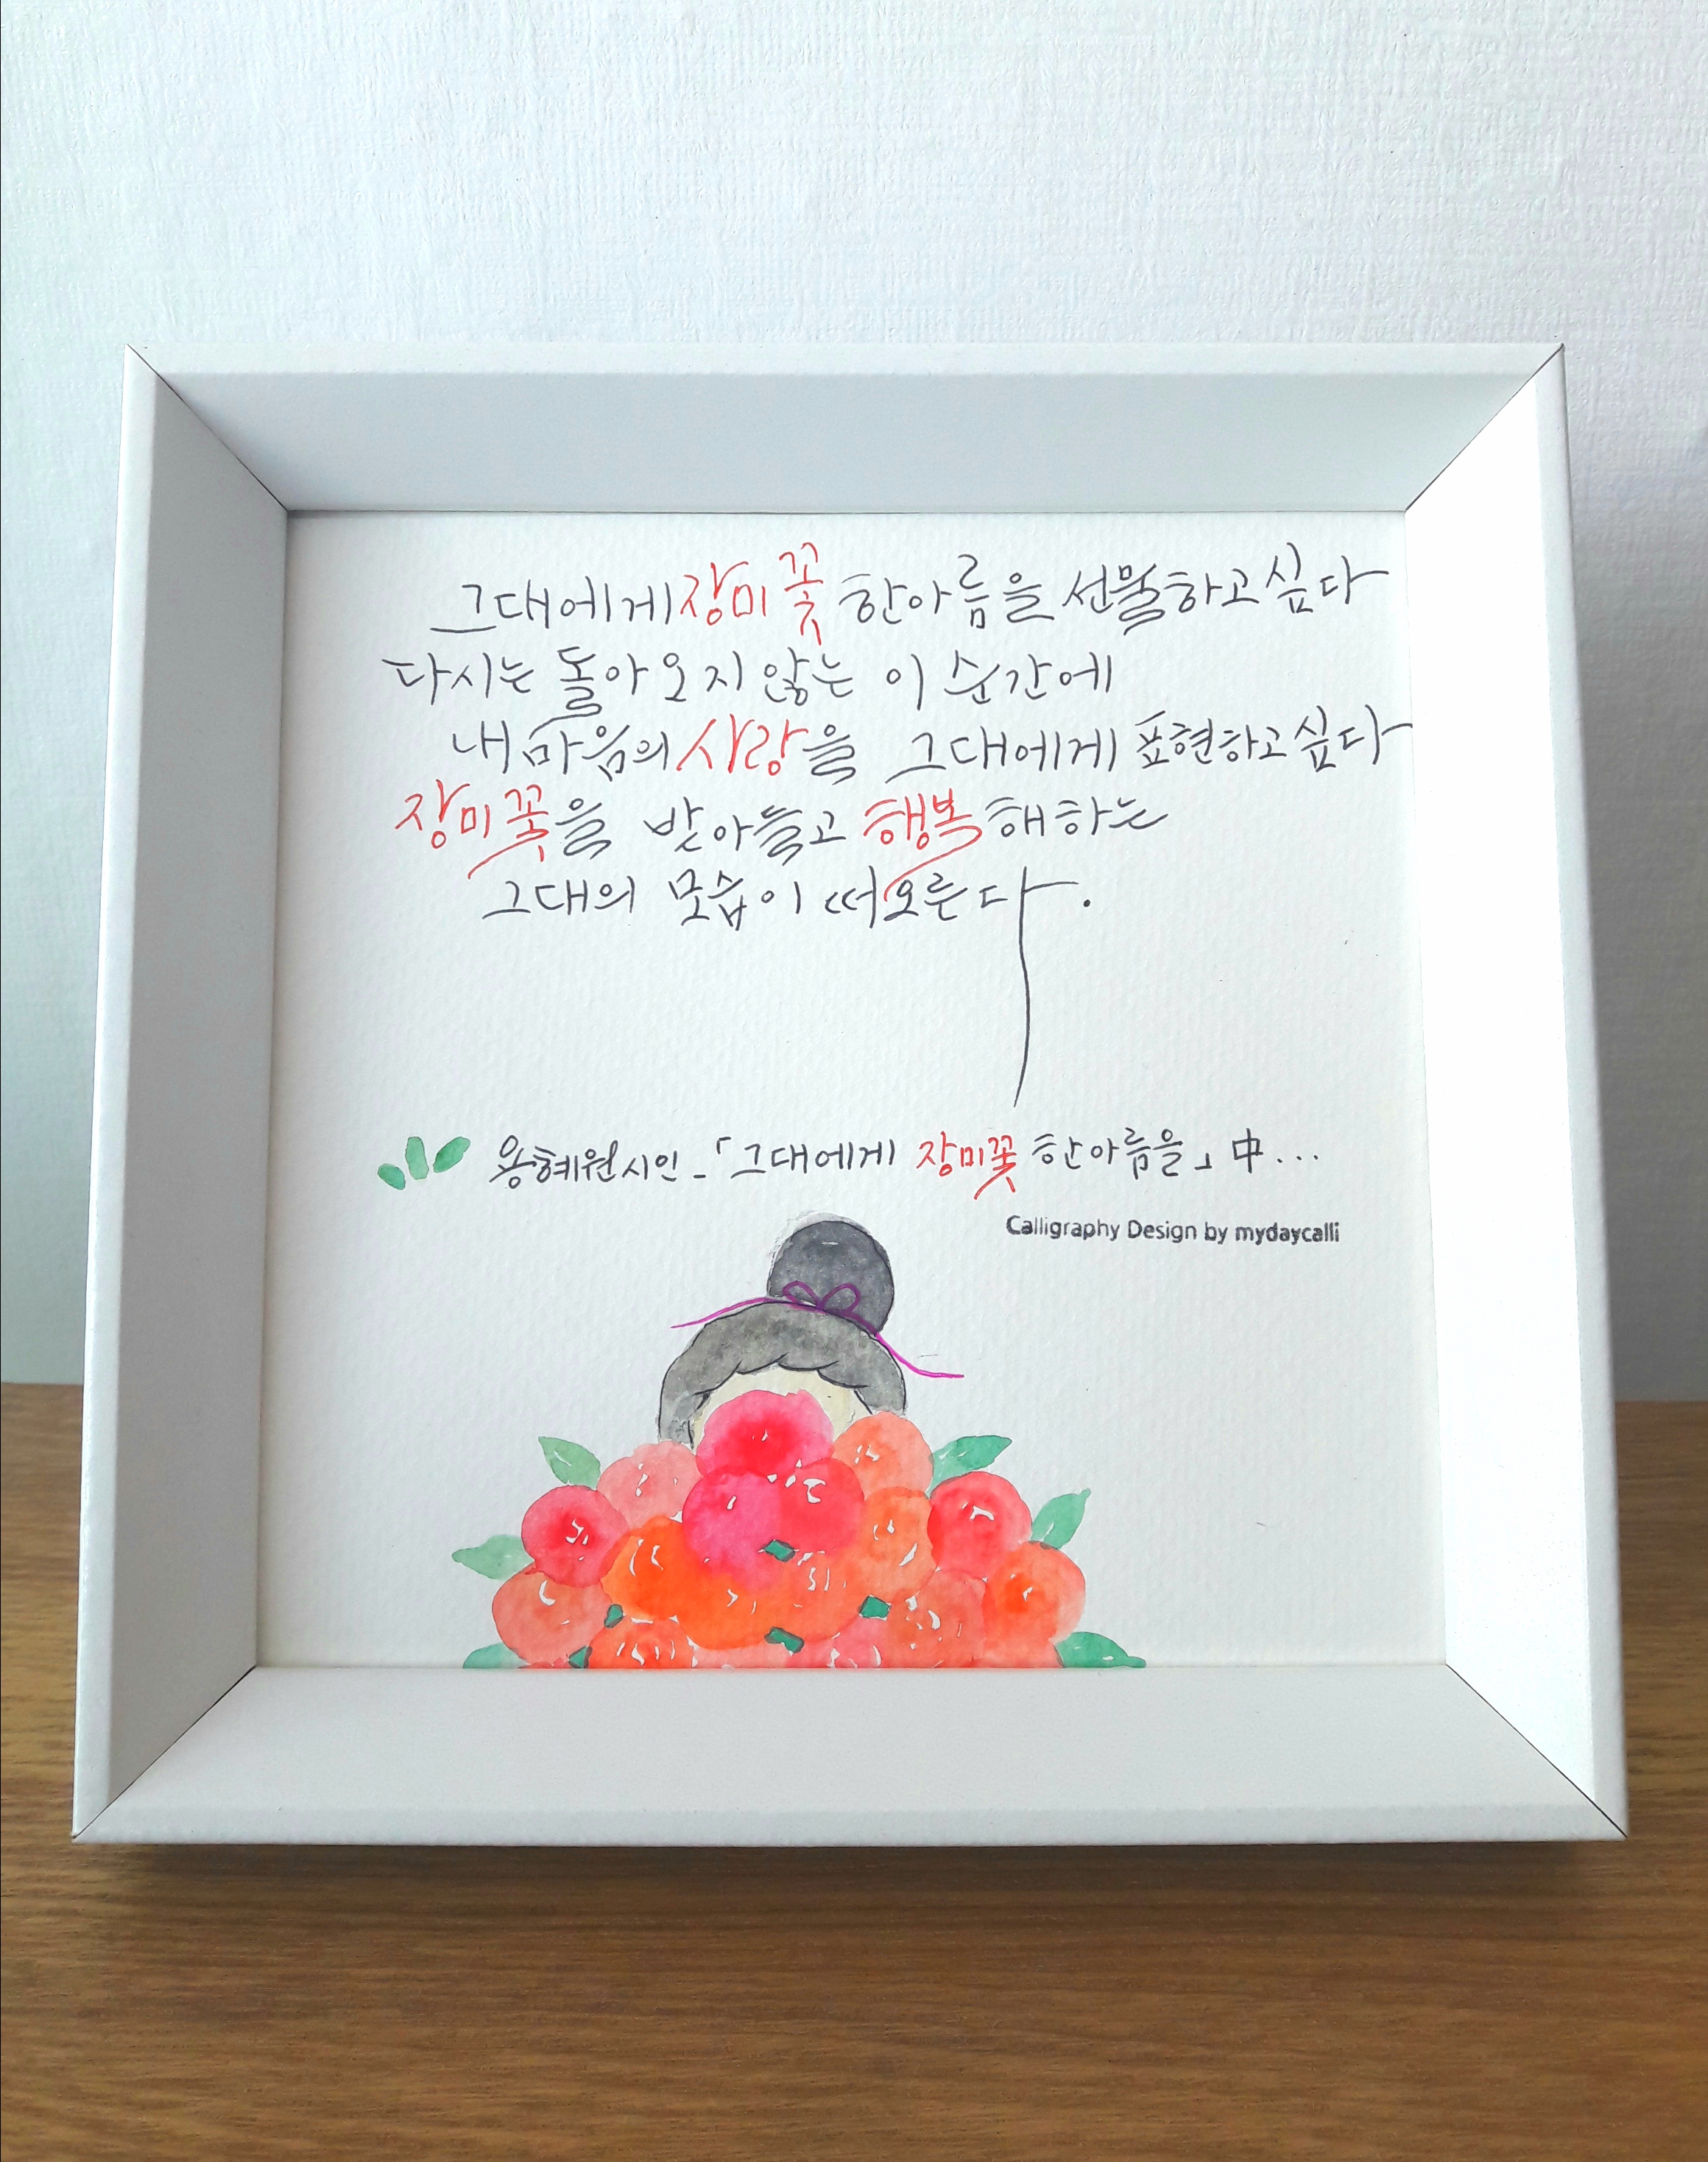 그대에게 장미꽃 한아름을 선물하고 싶다
다시는 돌아오지 않는 이 순간에
내 마음의 사랑을 그대에게 표현하고 싶다
장미꽃을 받아들고 행복해하는
그대의 모습이 떠오른다.
용혜원시인_「그대에게 장미꽃 한아름을」中...
Calligraphy Design by mydaycalli